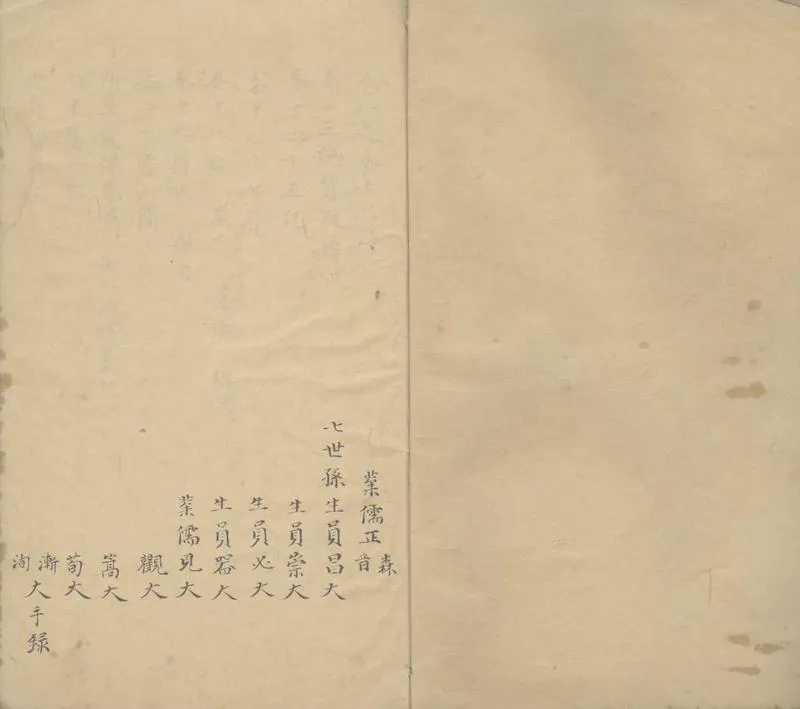 業儒正森音
七世孫生員昌大
生員崇大
生員必大
生員器大
業儒見大
觀大
嵩大
荀大
漸洵大手録